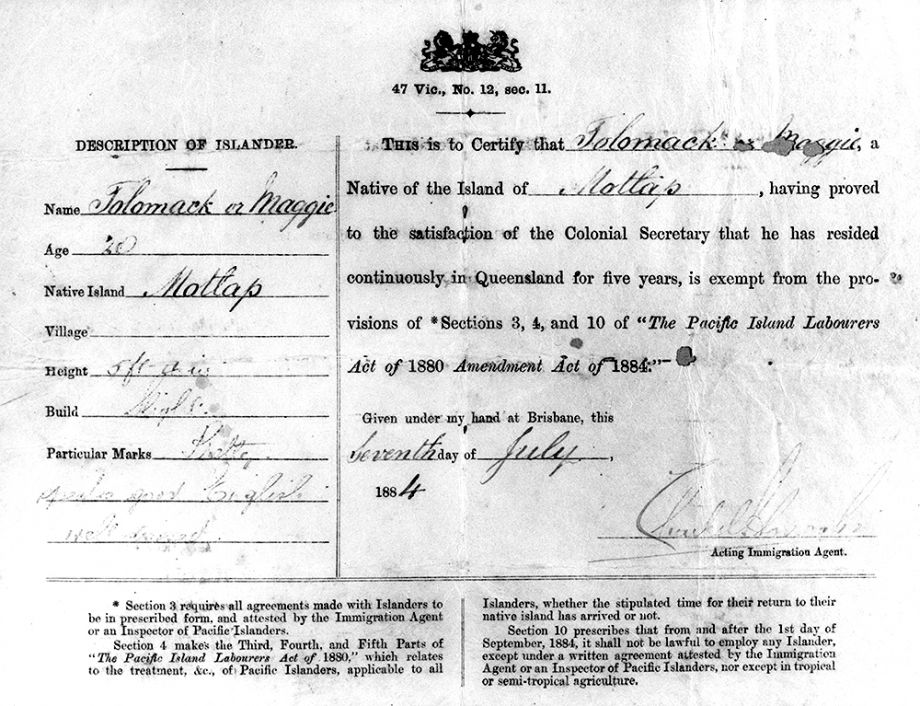 47 Vic., No. 12, sec. 11.
DESCRIPTION OF ISLANDER.
Name Tolomack or Maggie
Age 20
Native Island Motlap
Village
Height 5ft in
Build
Particular Marks
good English
well
THIS is to Certify that Tolomack or Maggie, a
Native of the Island of Motlap, having proved
to the satisfaction of the Colonial Secretary that he has resided
continuously in Queensland for five years, is exempt from the pro-
visions of *Sections 3, 4, and 10 of "The Pacific Island Labourers
Act of 1880 Amendment Act of 1884."
Given under my hand at Brisbane, this
Seventh day of July,
1884
Acting Immigration Agent.
* Section 3 requires all agreements made with Islanders to
be in prescribed form, and attested by the Immigration Agent
or an Inspector of Pacific Islanders.
Section 4 makes the Third, Fourth, and Fifth Parts of
"The Pacific Island Labourers Act of 1880," which relates
to the treatment, &c., of Pacific Islanders, applicable to all
Islanders, whether the stipulated time for their return to their
native island has arrived or not.
Section 10 prescribes that from and after the 1st day of
September, 1884, it shall not be lawful to employ any Islander,
except under a written agreement attested by the Immigration
Agent or an Inspector of Pacific Islanders, nor except in tropical
or semi-tropical agriculture.